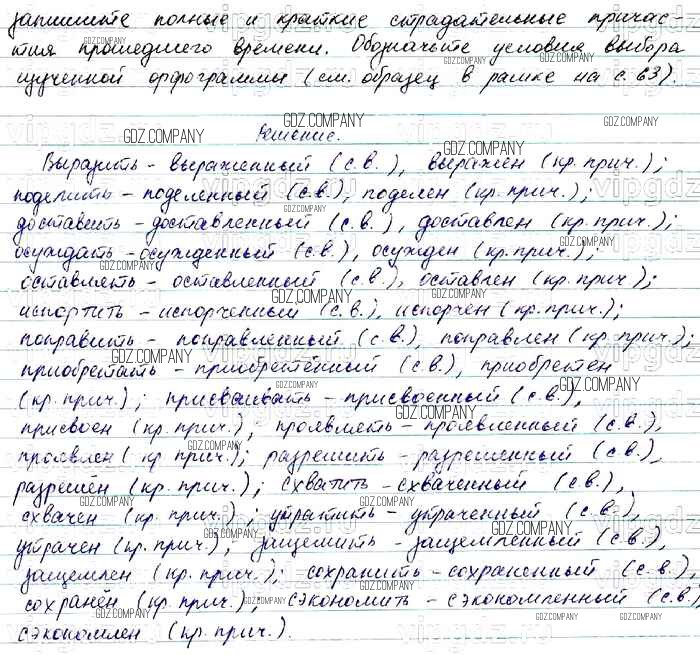 запишите полные и краткие страдательные причас-
тия прошедшего времени. Обозначьте условия выбора
изученной орфограммы (см. образец в рамке на с. 63).
Решение.
Выразить - выраженный (с.в.), выражен (кр. прич.);
поделить - поделенный (с.в.), поделен (кр. прич.);
доставить - доставленный (с.в.), доставлен (кр. прич.);
осуждать - осужденный (с.в.), осужден (кр. прич.);
оставлять - оставленный (с.в.), оставлен (кр. прич.);
испортить - испорченный (с.в.), испорчен (кр. прич.);
поправить - поправленный (с.в.), поправлен (кр. прич.);
приобретать - приобретённый (с.в.), приобретен
(кр. прич.); присваивать - присвоенный (с.в.),
присвоен (кр. прич.); проявлять - проявленный (с.в.),
проявлен (кр прич.); разрешить - разрешенный (с.в.),
разрешён (кр. прич.); схватить - схваченный (с.в.),
схвачен (кр. прич.); утратить - утраченный (с.в.),
утрачен (кр. прич.); защемить - защемленный (с.в.),
защемлен (кр. прич.); сохранить - сохраненный (с.в.),
сохранён (кр. прич.) сэкономить - сэкономленный (с.в.)
сэкономлен (кр. прич.).